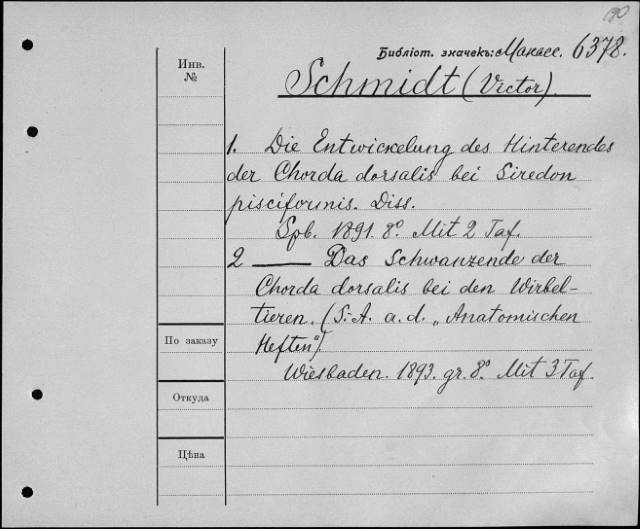 190
Библіот. значекъ: Макасс. 6378.
Инв.
№
Schmidt (Victor).
1. Die Entwickelung des Hinterendes
der Chorda dorsalis bei Siredon
pisciformis. Diss.
Spb. 1891. 8º. Mit 2 Taf.
2 —— Das Schwanzende der
Chorda dorsalis bei den Wirbel-
tieren. (S.-A. a. d. „Anatomischen
Heften").
Wiesbaden. 1893. gr. 8º. Mit 3 Taf.
По заказу
Откуда
Цѣна